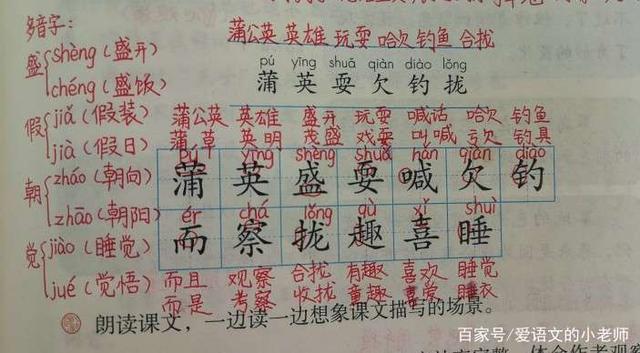 多音字:
盛 shèng(盛开)
chéng(盛饭)
假 jiǎ(假装)
jià(假日)
朝 zháo(朝向)
zhāo(朝阳)
觉 jiào(睡觉)
jué(觉悟)
蒲公英 英雄 玩耍 哈欠 钓鱼 合拢
pú yīng shuǎ qiàn diào lǒng
蒲 英 耍 欠 钓 拢
蒲公英 英雄 盛开 玩耍 喊话 哈欠 钓鱼
蒲草 英明 茂盛 戏耍 叫喊 亏欠 钓具
pú yīng shèng shuǎ hǎn qiàn diào
蒲 英 盛 耍 喊 欠 钓
ér chá lǒng qù xǐ shuì
而 察 拢 趣 喜 睡
而且 观察 合拢 有趣 喜欢 睡觉
而是 考察 收拢 童趣 喜爱 睡衣
朗读课文,一边读一边想象课文描写的场景。
百家号/爱语文的小老师